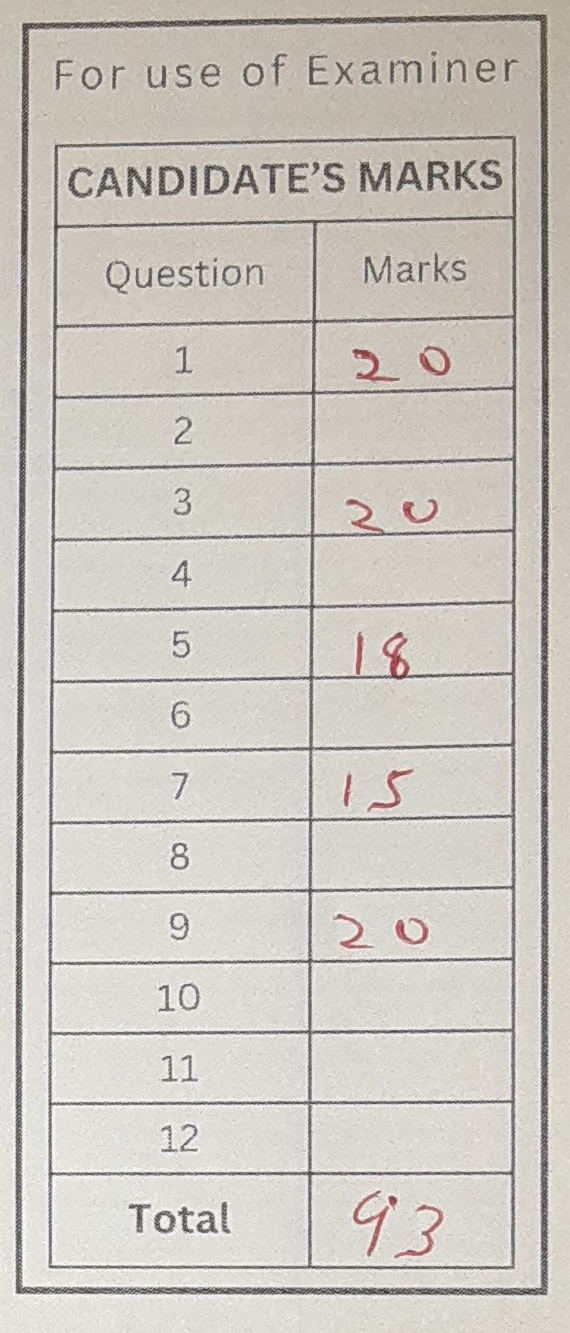 For use of Examiner
CANDIDATE'S MARKS
Question Marks
1 20
2
3 20
4
5 18
6
7 15
8
9 20
10
11
12
Total 93